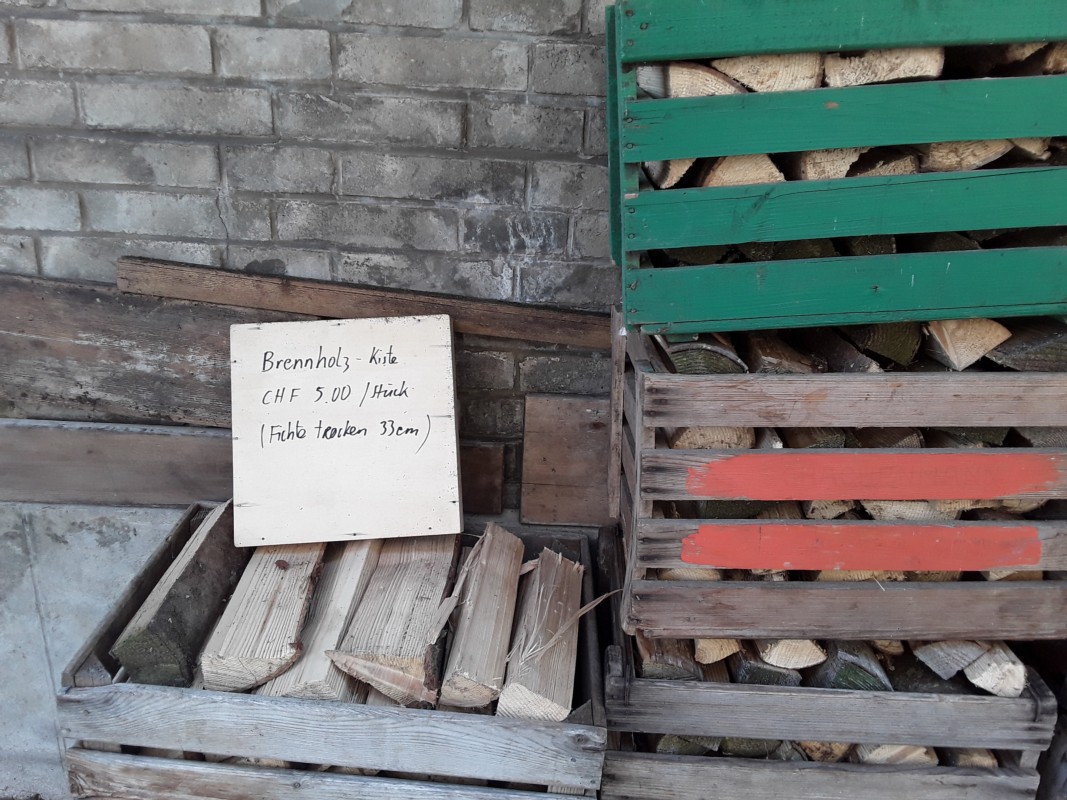 Brennholz-Kiste
CHF 5.00 /Stück
(Fichte trocken 33cm)